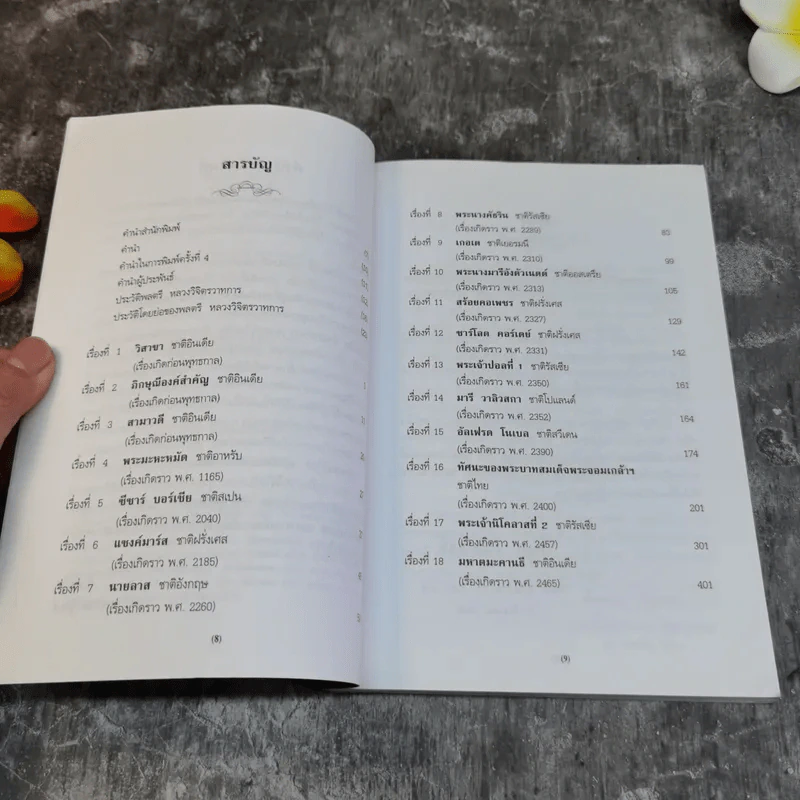 สารบัญ
คำนำสำนักพิมพ์
คำนำ
คำนำในการพิมพ์ครั้งที่ 4
คำนำผู้ประพันธ์
ประวัติพลตรี หลวงวิจิตรวาทการ
ประวัติโดยย่อของพลตรี หลวงวิจิตรวาทการ
เรื่องที่ 1 วิสาขา ชาติอินเดีย
(เรื่องเกิดก่อนพุทธกาล)
เรื่องที่ 2 ภิกษุณีองค์สำคัญ ชาติอินเดีย
(เรื่องเกิดก่อนพุทธกาล)
เรื่องที่ 3 สามาวดี ชาติอินเดีย
(เรื่องเกิดก่อนพุทธกาล)
เรื่องที่ 4 พระมะหะหมัด ชาติอาหรับ
(เรื่องเกิดราว พ.ศ. 1165)
เรื่องที่ 5 ซีซาร์ บอร์เซีย ชาติสเปน
(เรื่องเกิดราว พ.ศ. 2040)
เรื่องที่ 6 แซงค์มาร์ส ชาติฝรั่งเศส
(เรื่องเกิดราว พ.ศ. 2185)
เรื่องที่ 7 นายลาส ชาติอังกฤษ
(เรื่องเกิดราว พ.ศ. 2260)
(8)
เรื่องที่ 8 พระนางคัธริน ชาติรัสเซีย
(เรื่องเกิดราว พ.ศ. 2285) 83
เรื่องที่ 9 เกอเต ชาติเยอรมนี
(เรื่องเกิดราว พ.ศ. 2310) 99
เรื่องที่ 10 พระนางมารีอังตัวเนตต์ ชาติออสเตรีย
(เรื่องเกิดราว พ.ศ. 2313) 105
เรื่องที่ 11 สร้อยคอเพชร ชาติฝรั่งเศส
(เรื่องเกิดราว พ.ศ. 2327) 129
เรื่องที่ 12 ชาร์โลต คอร์เดย์ ชาติฝรั่งเศส
(เรื่องเกิดราว พ.ศ. 2331) 142
เรื่องที่ 13 พระเจ้าปอลที่ 1 ชาติรัสเซีย
(เรื่องเกิดราว พ.ศ. 2350) 161
เรื่องที่ 14 มารี วาลิวสกา ชาติโปแลนด์
(เรื่องเกิดราว พ.ศ. 2352) 164
เรื่องที่ 15 อัลเฟรด โนเบล ชาติสวีเดน
(เรื่องเกิดราว พ.ศ. 2390) 174
เรื่องที่ 16 ทัศนะของพระบาทสมเด็จพระจอมเกล้าฯ
ชาติไทย
(เรื่องเกิดราว พ.ศ. 2400) 201
เรื่องที่ 17 พระเจ้านิโคลาสที่ 2 ชาติรัสเซีย
(เรื่องเกิดราว พ.ศ. 2457) 301
เรื่องที่ 18 มหาตมะคานธี ชาติอินเดีย
(เรื่องเกิดราว พ.ศ. 2465) 401
(9)